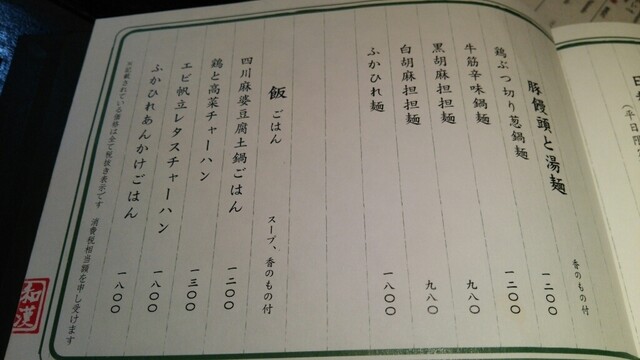 豚饅頭と湯麺 香のもの付
鶏ぶつ切り葱鍋麺 一二〇〇
牛筋辛味鍋麺 一二〇〇
黒胡麻担担麺 九八〇
白胡麻担担麺 九八〇
ふかひれ麺 一八〇〇
飯 ごはん スープ、香のもの付
四川麻婆豆腐土鍋ごはん 一二〇〇
鶏と高菜チャーハン 一二〇〇
エビ帆立レタスチャーハン 一三〇〇
ふかひれあんかけごはん 一八〇〇
※記載されている価格は全て税抜き表示です 消費税相当額を申し受けます
和漢
(平日限